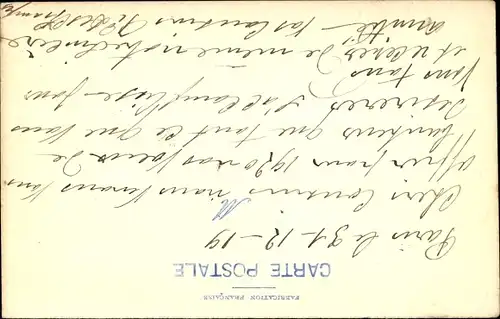 FABRICATION FRANÇAISE
CARTE POSTALE
Paris le 31-12-19
Chers Cousins nous venons vous
offrir pour 1920 nos vœux de
bonheur que tout ce que vous
désirerez s'accomplisse pour
vous tous
et recevez de même notre sincère
amitié vos cousins